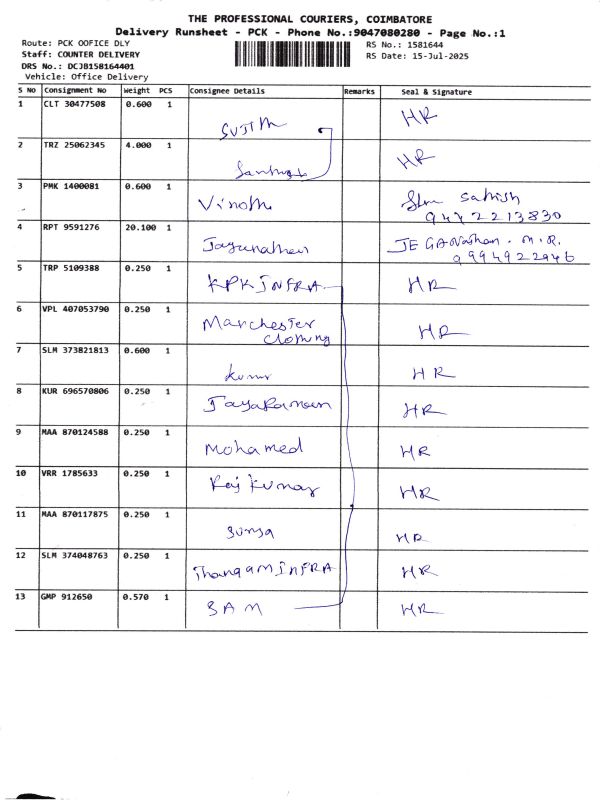 THE PROFESSIONAL COURIERS, COIMBATORE
Delivery Runsheet - PCK - Phone No.:9047080280 - Page No.:1
Route: PCK OOFICE DLY
RS No.: 1581644
Staff: COUNTER DELIVERY
RS Date: 15-Jul-2025
DRS No.: DCJB158164401
Vehicle: Office Delivery
S No Consignment No Weight PCS Consignee Details Remarks Seal & Signature
1 CLT 30477508 0.600 1 SUJITH HR
2 TRZ 25062345 4.000 1 HR
3 PMK 1400081 0.600 1 Vinoth Sathish
9442213830
4 RPT 9591276 20.100 1 JEGANathan. M.R.
9994922946
5 TRP 5109388 0.250 1 KPK INFRA HR
6 VPL 407053790 0.250 1 Marchester HR
Clothing
7 SLM 373821813 0.600 1 Kumar HR
8 KUR 696570806 0.250 1 Jayaraman HR
9 MAA 870124588 0.250 1 Mohamed HR
10 VRR 1785633 0.250 1 Raj Kumar HR
11 MAA 870117875 0.250 1 Surya HR
12 SLM 374048763 0.250 1 Thangam INFRA HR
13 GMP 912650 0.570 1 SAM HR